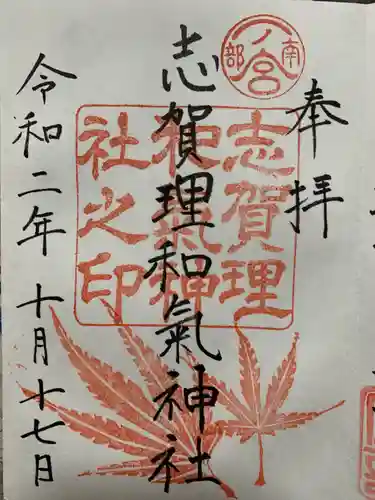 奉拝
南部一ノ宮
志賀理和氣神社
志賀理
和氣神
社之印
令和二年 十月十七日